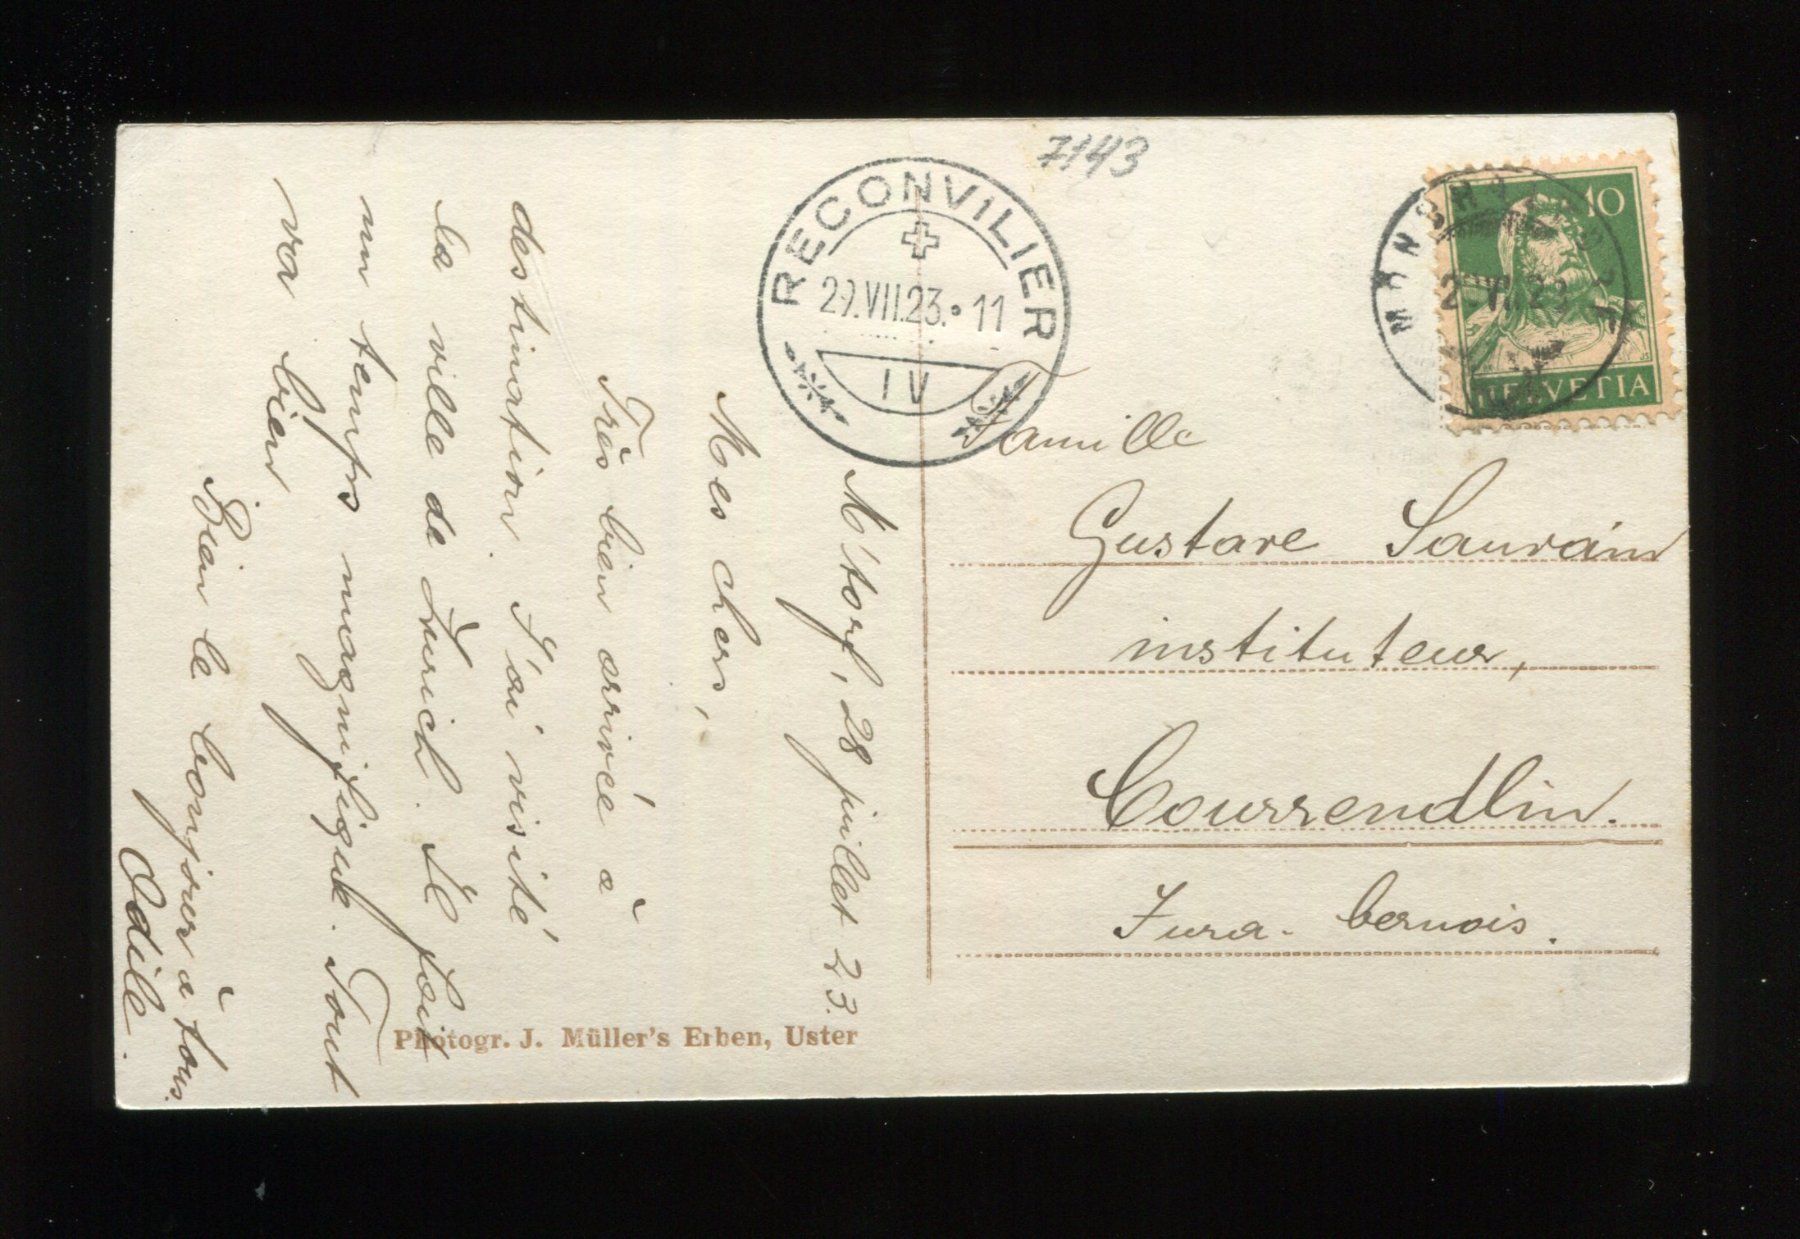 7143
RECONVILIER
29.VII.23.•11
IV
10
HELVETIA
M'torf, 28 juillet 23.
Mes chers,
Très bien arrivée à
destination. J'ai visité
la ville de Zurich. Il fait
un temps magnifique. Tout
va bien
Bien le bonjour à tous.
Odile.
Famille
Gustave
instituteur,
Courrendlin.
Jura-bernois.
Photogr. J. Müller's Erben, Uster